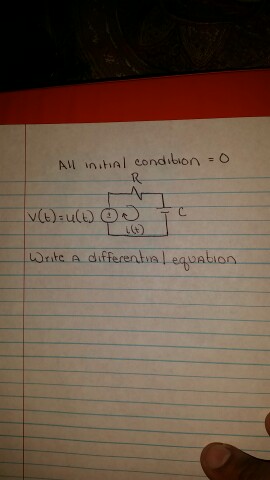 All initial condition = 0
R
V(t)=u(t)
C
i(t)
Write a differential equation